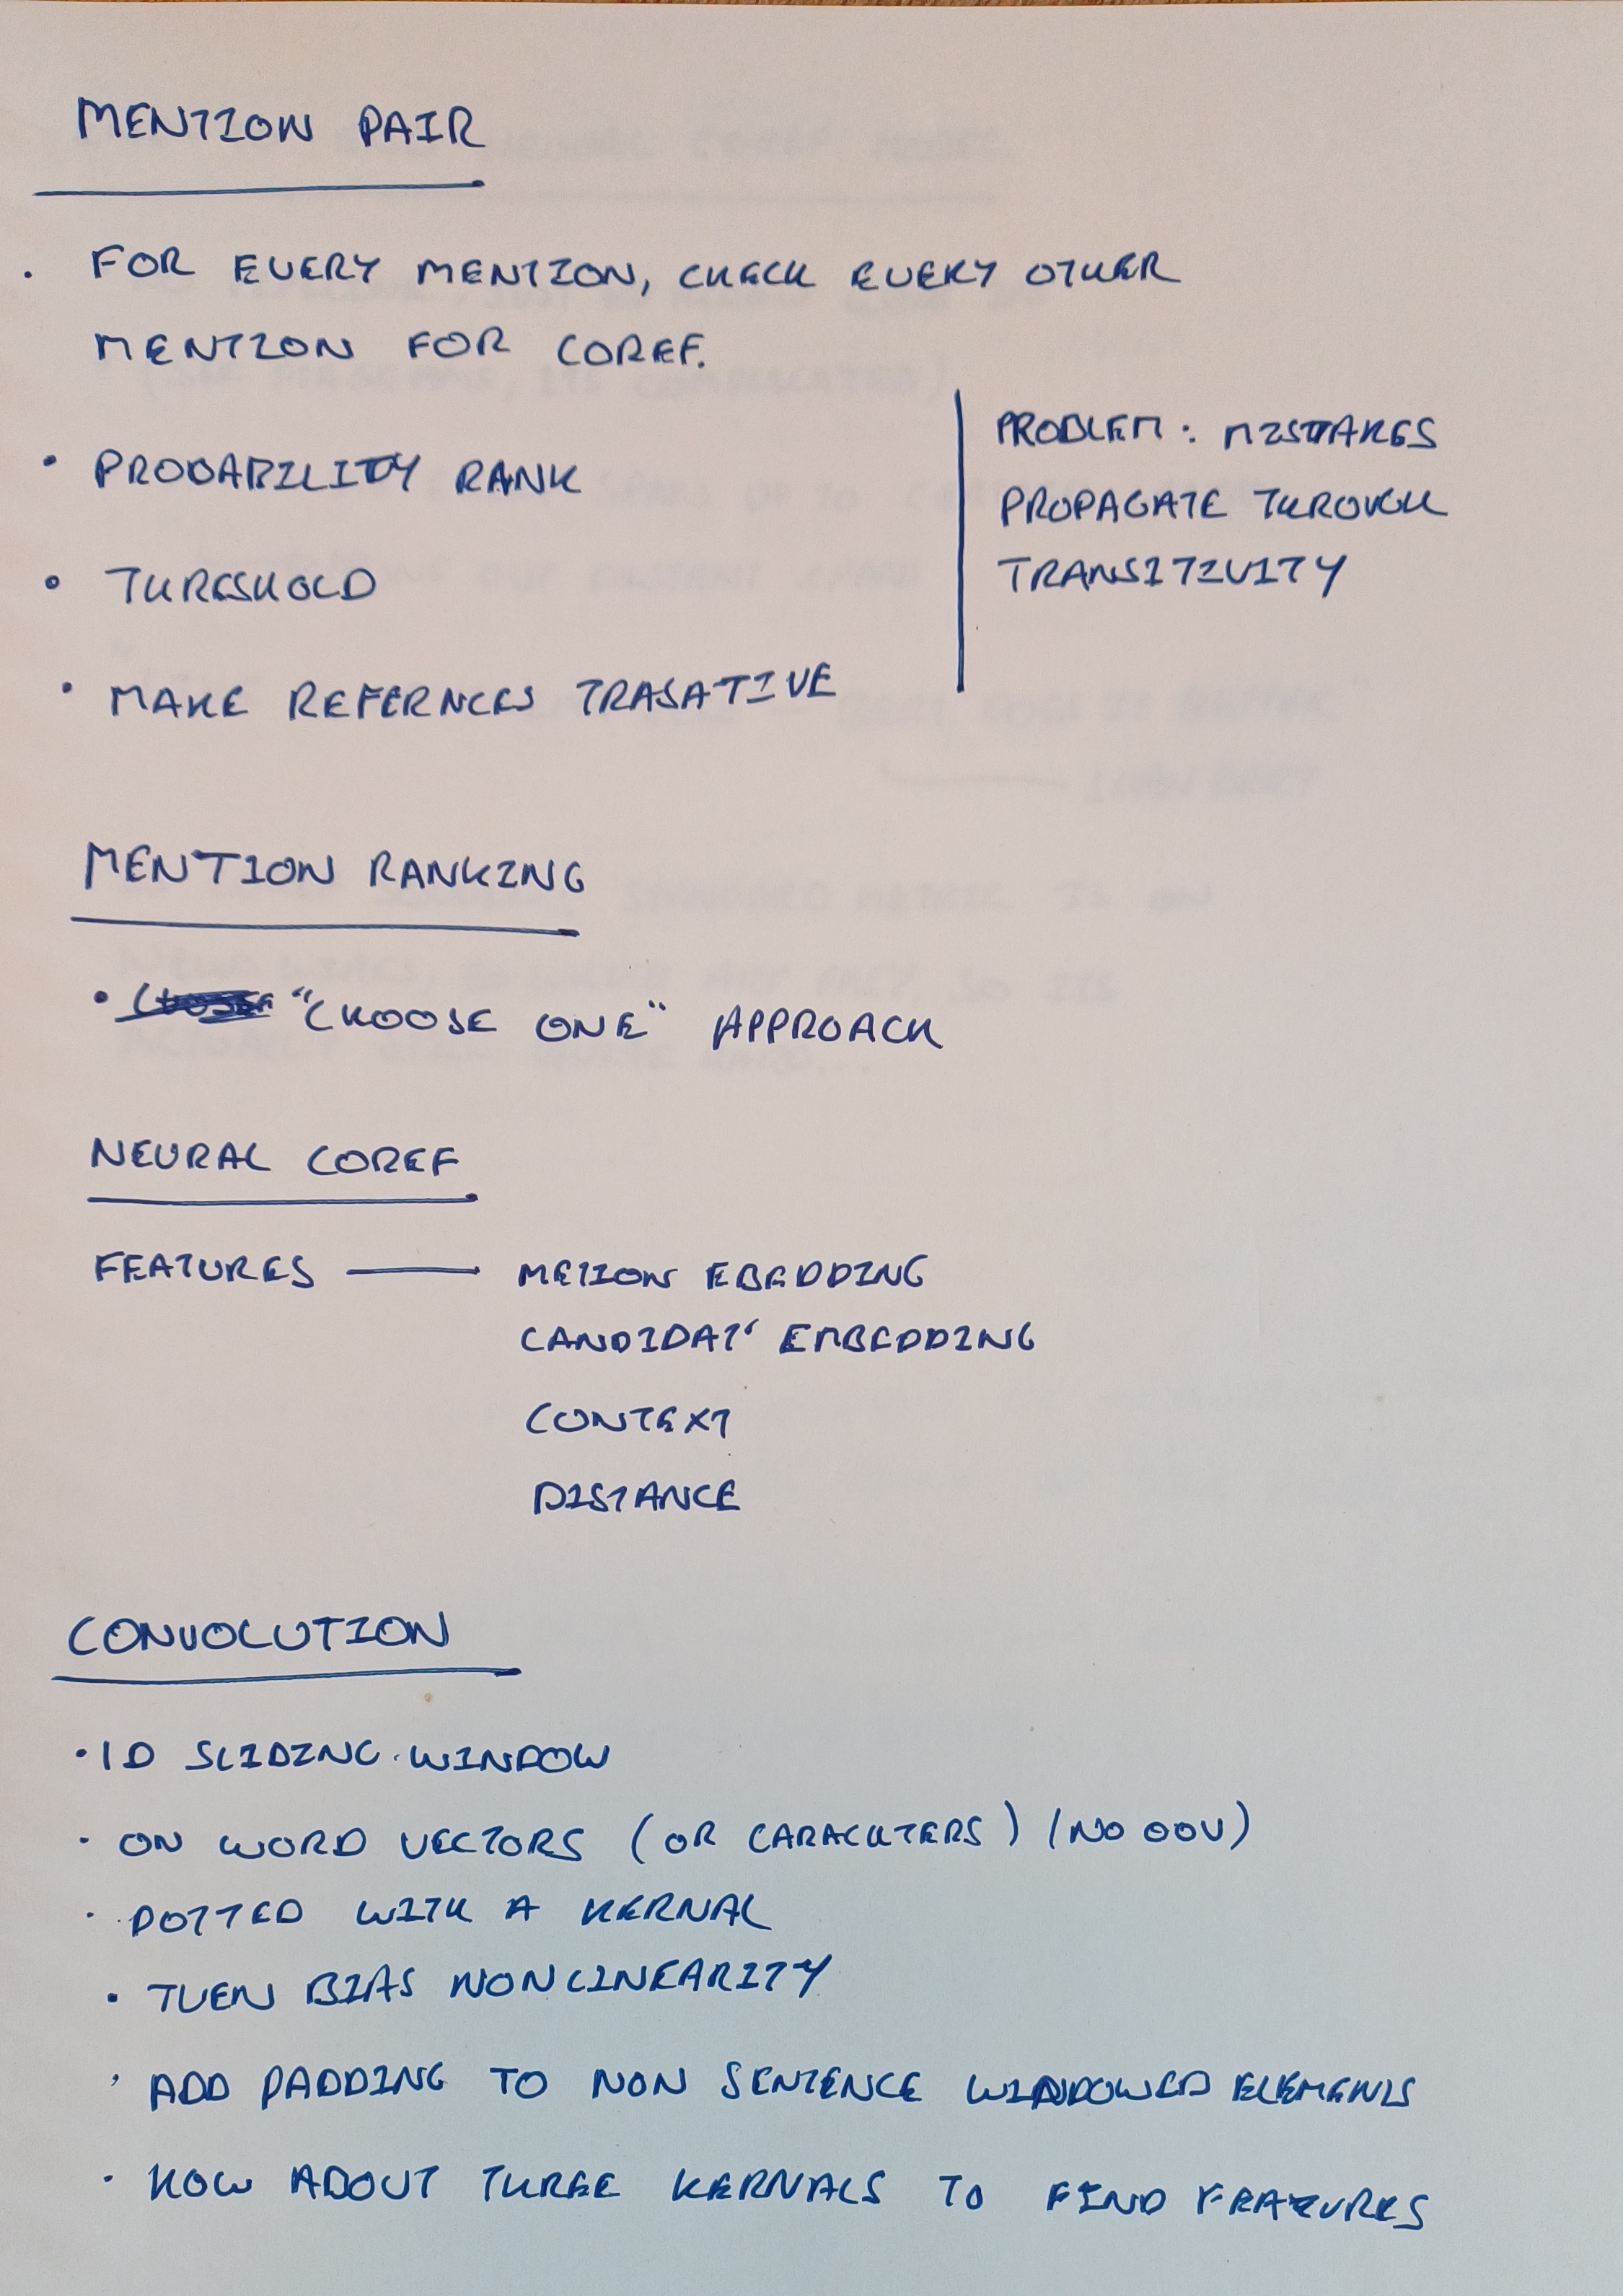 MENTION PAIR
. FOR EVERY MENTION, CHECK EVERY OTHER
MENTION FOR COREF.
• PROBABILITY RANK
• THRESHOLD
• MAKE REFERNCES TRASATIVE
PROBLEM: MISTAKES
PROPAGATE THROUGH
TRANSITIVITY
MENTION RANKING
• "CHOOSE ONE" APPROACH
NEURAL COREF
FEATURES — METION EBEDDING
CANDIDAT' EMBEDDING
CONTEXT
DISTANCE
CONVOLUTION
• 1D SLIDING WINDOW
• ON WORD VECTORS (OR CARACHTERS) (NO OOV)
• DOTTED WITH A KERNAL
• THEN BIAS NONLINEARITY
• ADD PADDING TO NON SENTENCE WINDOWED ELEMENTS
• HOW ABOUT THREE KERNALS TO FIND FEATURES